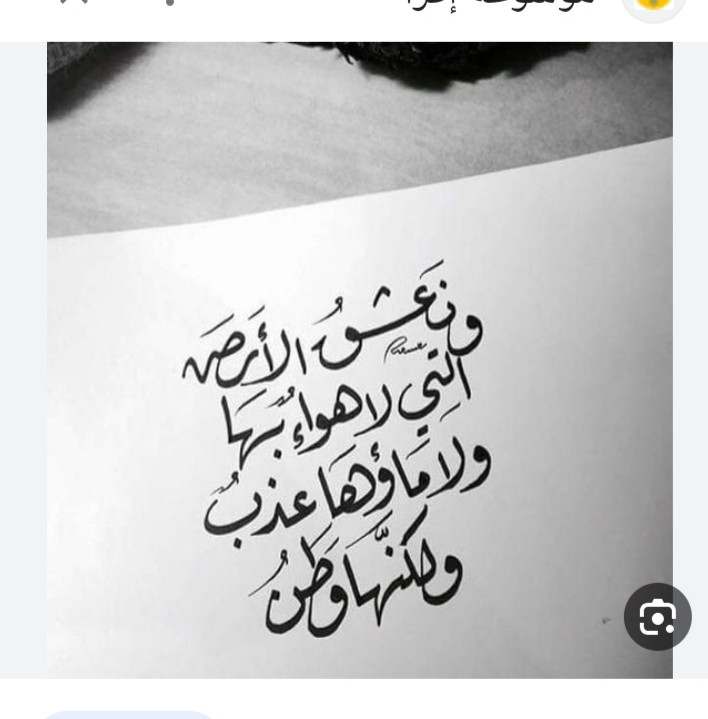 موسوعة إقرأ
ونَعشقُ الأَرضَ
التي لا هواءٌ بهَا
ولا مَاؤهَا عذبٌ
ولكنّهَا وَطنُ